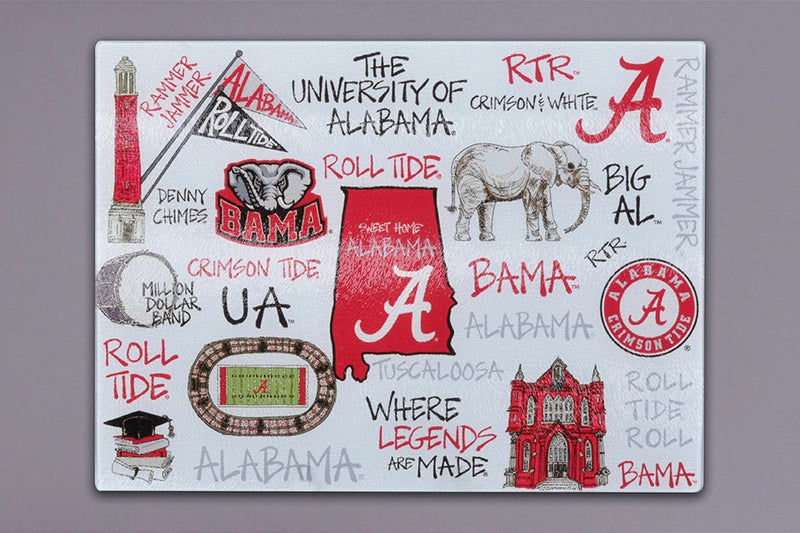 RAMMER
JAMMER
ALABAMA
ROLL TIDE
DENNY
CHIMES
THE
UNIVERSITY OF
ALABAMA®
RTR™
CRIMSON & WHITE™
A
®
RAMMER JAMMER™
BAMA
ROLL TIDE®
BIG
AL™
SWEET HOME
ALABAMA
A
MILLION
DOLLAR
BAND
CRIMSON TIDE®
UA™
BAMA™
ALABAMA®
RTR™
ALABAMA
A
CRIMSON TIDE
®
ROLL
TIDE®
A
TUSCALOOSA
WHERE
LEGENDS
ARE MADE®
ALABAMA®
ROLL
TIDE
ROLL
BAMA™